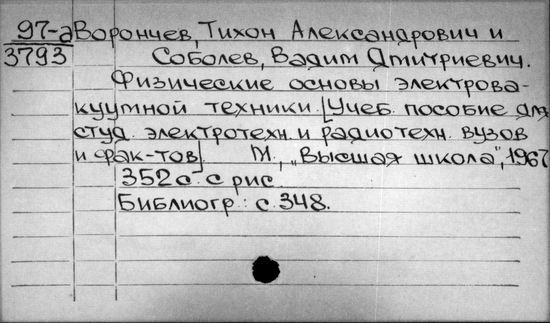 97-2 Ворончев, Тихон Александрович и
3793 Соболев, Вадим Дмитриевич.
Физические основы электрова-
куумной техники. [Учеб. пособие для
студ. электротехн. и радиотехн. вузов
и фак-тов]. М., „Высшая школа", 1967
352с. с рис.
Библиогр.: с. 348.